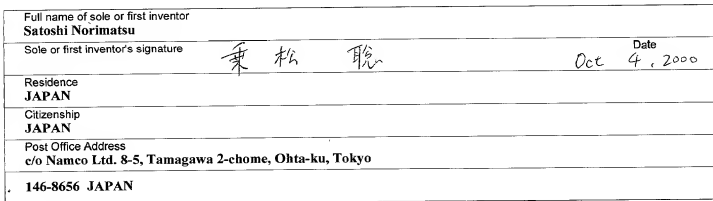 Full name of sole or first inventor
Satoshi Norimatsu
Sole or first inventor's signature 乗松 聡 Date Oct 4, 2000
Residence
JAPAN
Citizenship
JAPAN
Post Office Address
c/o Namco Ltd. 8-5, Tamagawa 2-chome, Ohta-ku, Tokyo
146-8656 JAPAN